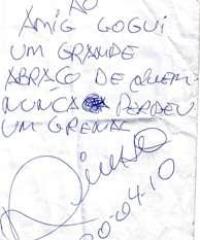 AO
AMIG GOGUI
UM GRANDE
ABRAÇO DE QUEM
NUNCA PERDEU
UM GRENAL
20-04-10